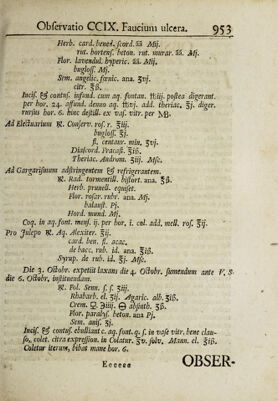 Observatio CCIX. Faucium ulcera. 953
Herb. card. bened. scord. āā Mij.
rut. hortens. beton. rut. murar. āā. Mj.
Flor. lavendul. hyperic. āā. Mj.
bugloss. Mj.
Sem. angelic. fœnic. ana. ʒvj.
citr. ℥ß.
Incis. & contus. infund. cum aq. fontan. postea digerant.
per hor. 24. affund. denuo aq. add. theriac. ℥j. diger.
rursus hor. 6. hinc destill. ex vas. vitr. per MB.
Ad Electuarium ℞. Conserv. ros. r. ℥iij.
bugloss. ℥j.
fl. centaur. min. ʒvj.
Diascord. Fracast. ℥iß.
Theriac. Androm. ℥ij. Msc.
Ad Gargarismum adstringentem & refrigerantem.
℞. Rad. tormentill. bistort. ana. ℥ß.
Herb. prunell. equiset.
Flor. rosar. rubr. ana. Mj.
balaust. Pj.
Hord. mund. Mj.
Coq. in aq. font. mens. ij. per hor. i. col. add. mell. ros. ℥ij.
Pro Julepo ℞. Aq. Alexiter. ℥ij.
card. ben. fl. acac.
de bacc. rub. id. ana. ℥iß.
Syrup. de rub. id. ℥j. Msc.
Die 3. Octobr. expetiit laxans die 4. Octobr. sumendum ante V. S.
die 6. Octobr. instituendam.
℞. Fol. Senn. s. s. ℥iij.
Rhabarb. el. ʒij. Agaric. alb. ʒiß.
Crem. absinth. ℥ß.
Flor. paralys. beton. ana Pj.
Sem. anis. ʒj.
Incis. & contus. ebulliant c. aq. font. q. s. in vase vitr. bene clau-
so, colet. citra expression. in Colatur. ℥v. solv. Mann. el. ℥iß.
Coletur iterum, bibat mane hor. 6.
Eeeeee
OBSER-